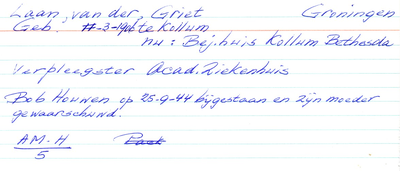 Laan, van der, Griet Groningen
Geb. 11-3-1906 te Kollum
nu: Bej.huis Kollum Bethesda
Verpleegster Acad. Ziekenhuis
Bob Houwen op 25-9-44 bijgestaan en zijn moeder
gewaarschuwd.
AM-H
5